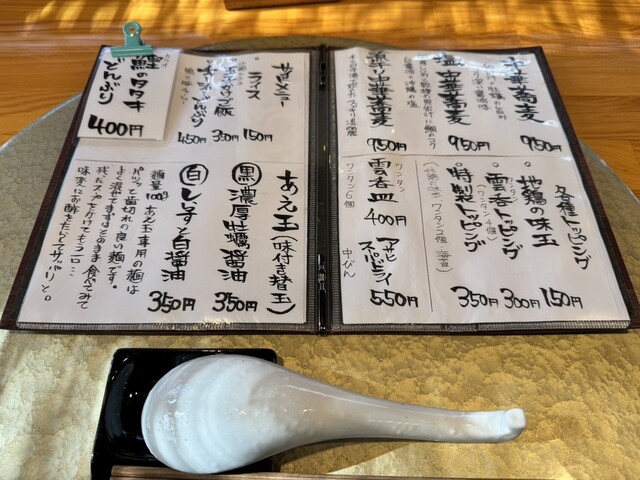 中華蕎麦
950円
塩中華蕎麦
950円
煮干し中華蕎麦
950円
各種トッピング
地鶏の味玉
150円
雲呑トッピング
(ワンタン4個)
300円
特製トッピング
350円
雲呑皿
ワンタン6個
400円
アサヒ
スーパードライ
中びん
550円
サイドメニュー
ライス
150円
350円
450円
鰹のタタキ
どんぶり
400円
あえ玉(味付き替玉)
黒 濃厚牡蠣醤油
350円
白 しらすと白醤油
350円
麺量100g
あえ玉専用の麺は
パツッと歯切れの良い麺です。
よく混ぜてまずはそのまま食べてみて
残ったスープをかけてもう一口…
味変にお酢をたらしてサッパリと。